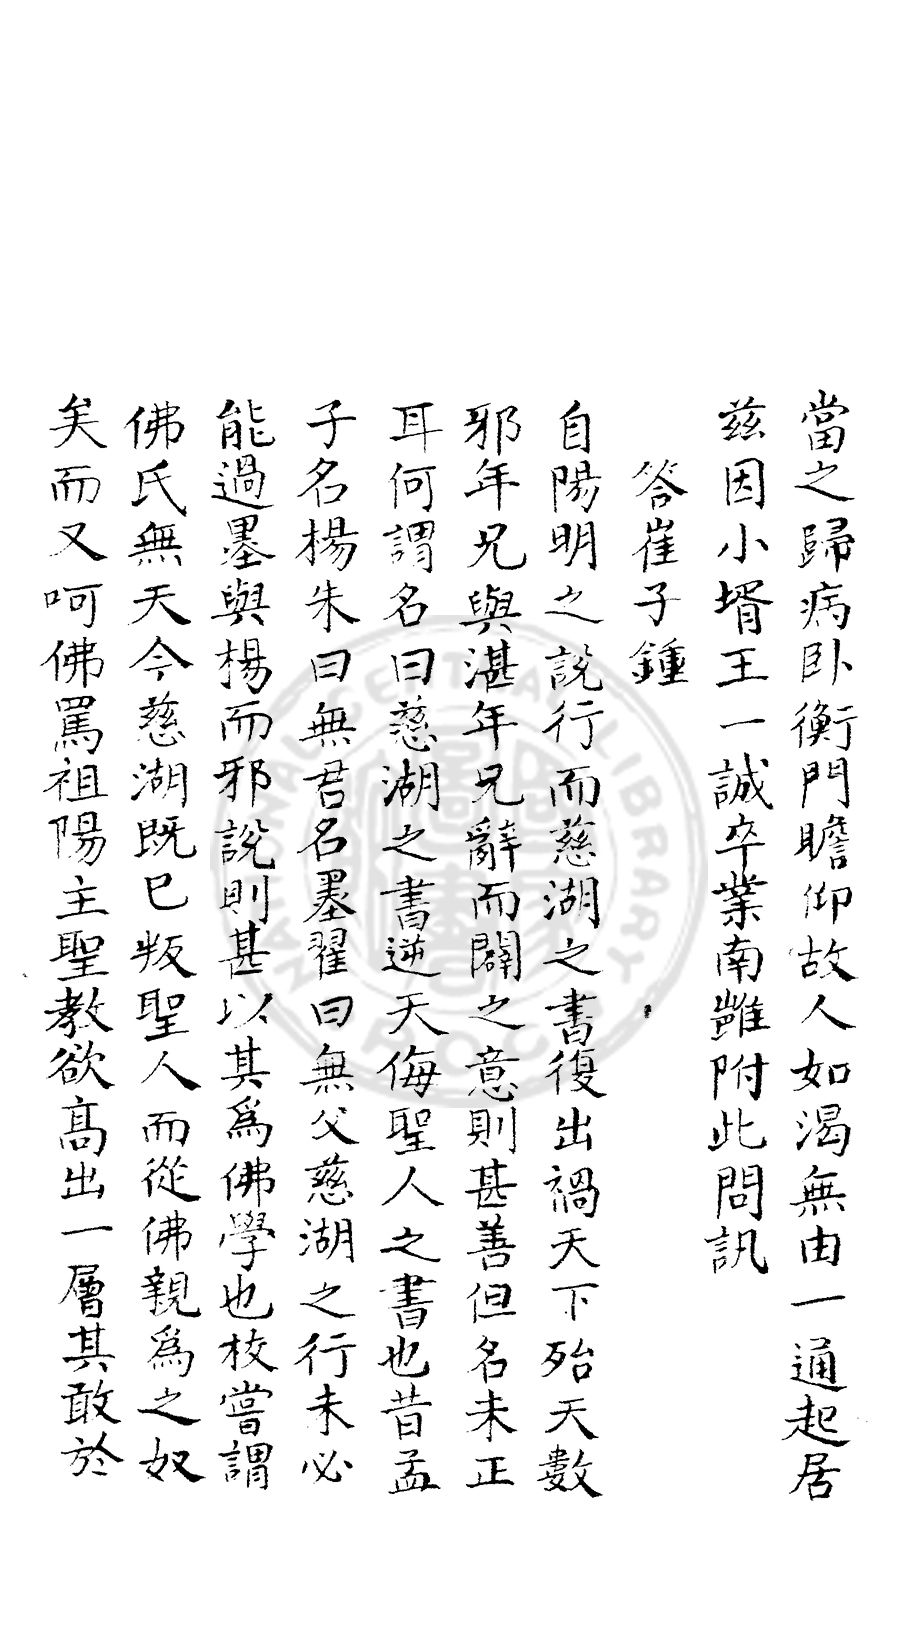 當之歸病卧衡門瞻仰故人如渴無由一通起居
茲因小壻王一誠卒業南雝附此問訊
答崔子鍾
自陽明之說行而慈湖之書復出禍天下殆天數
邪年兄與湛年兄辭而闢之意則甚善但名未正
耳何謂名曰慈湖之書逆天侮聖人之書也昔孟
子名楊朱曰無君名墨翟曰無父慈湖之行未必
能過墨與楊而邪說則甚以其爲佛學也校嘗謂
佛氏無天今慈湖旣已叛聖人而從佛親爲之奴
矣而又呵佛罵祖陽主聖教欲髙出一層其敢於
NATIONAL CENTRAL LIBRARY
R.O.C